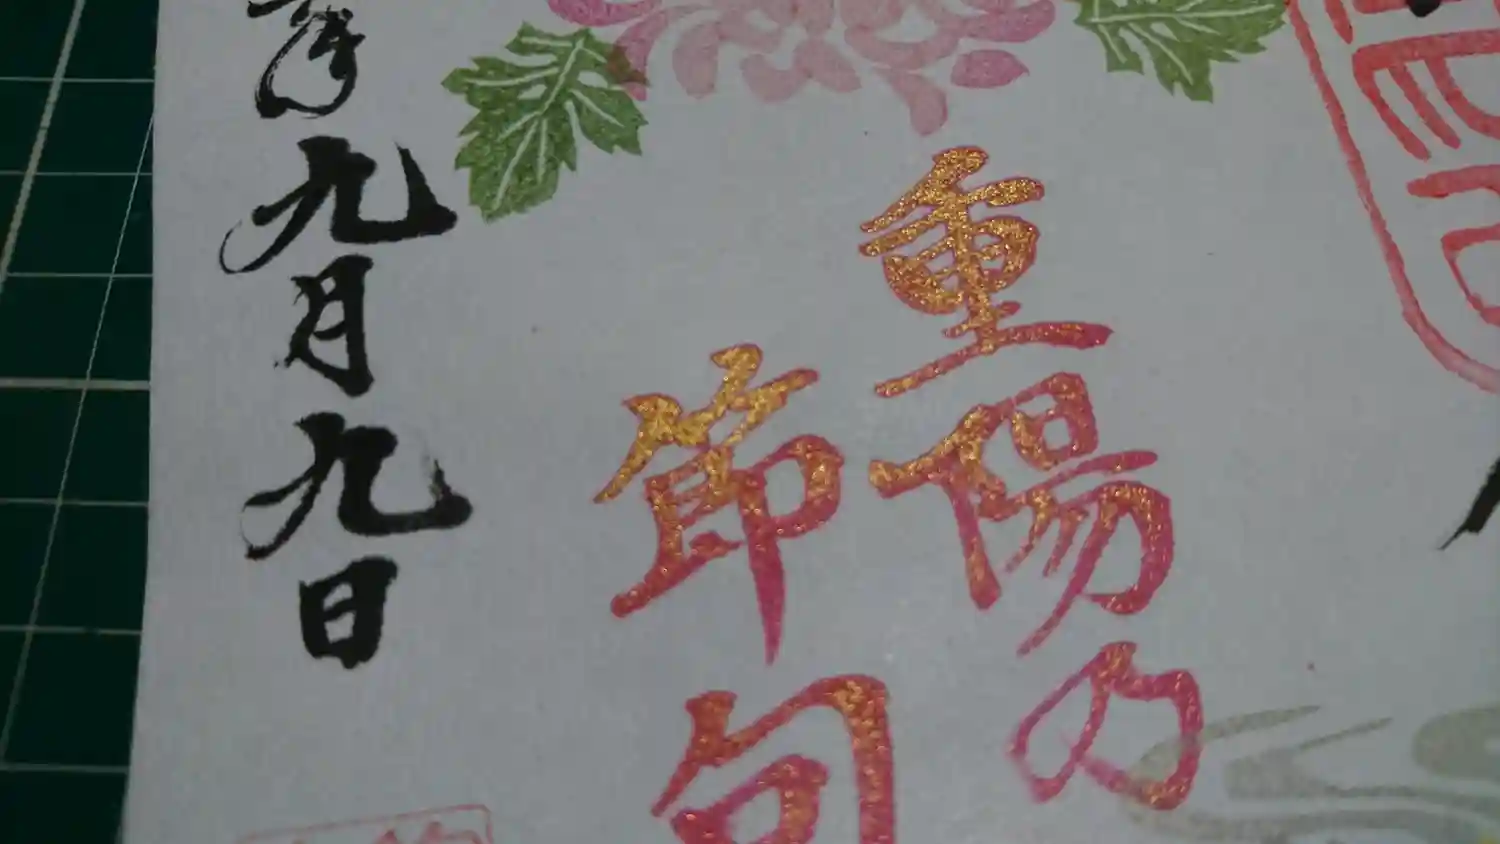 重陽乃
節句
年九月九日